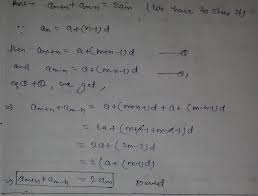 Ans- am+n + am-n = 2am (We have to show it)
∵ an = a+(n-1)d
then- am+n = a+(m+n-1)d —①
and am-n = a+(m-n-1)d —②,
eq ①+②, we get,
⇒ am+n + am-n = a+(m+n-1)d + a+(m-n-1)d
= 2a+(m+n-1+m-n-1)d
= 2a+(2m-2)d
= 2(a+(m-1)d)
⇒ am+n + am-n = 2am Proved